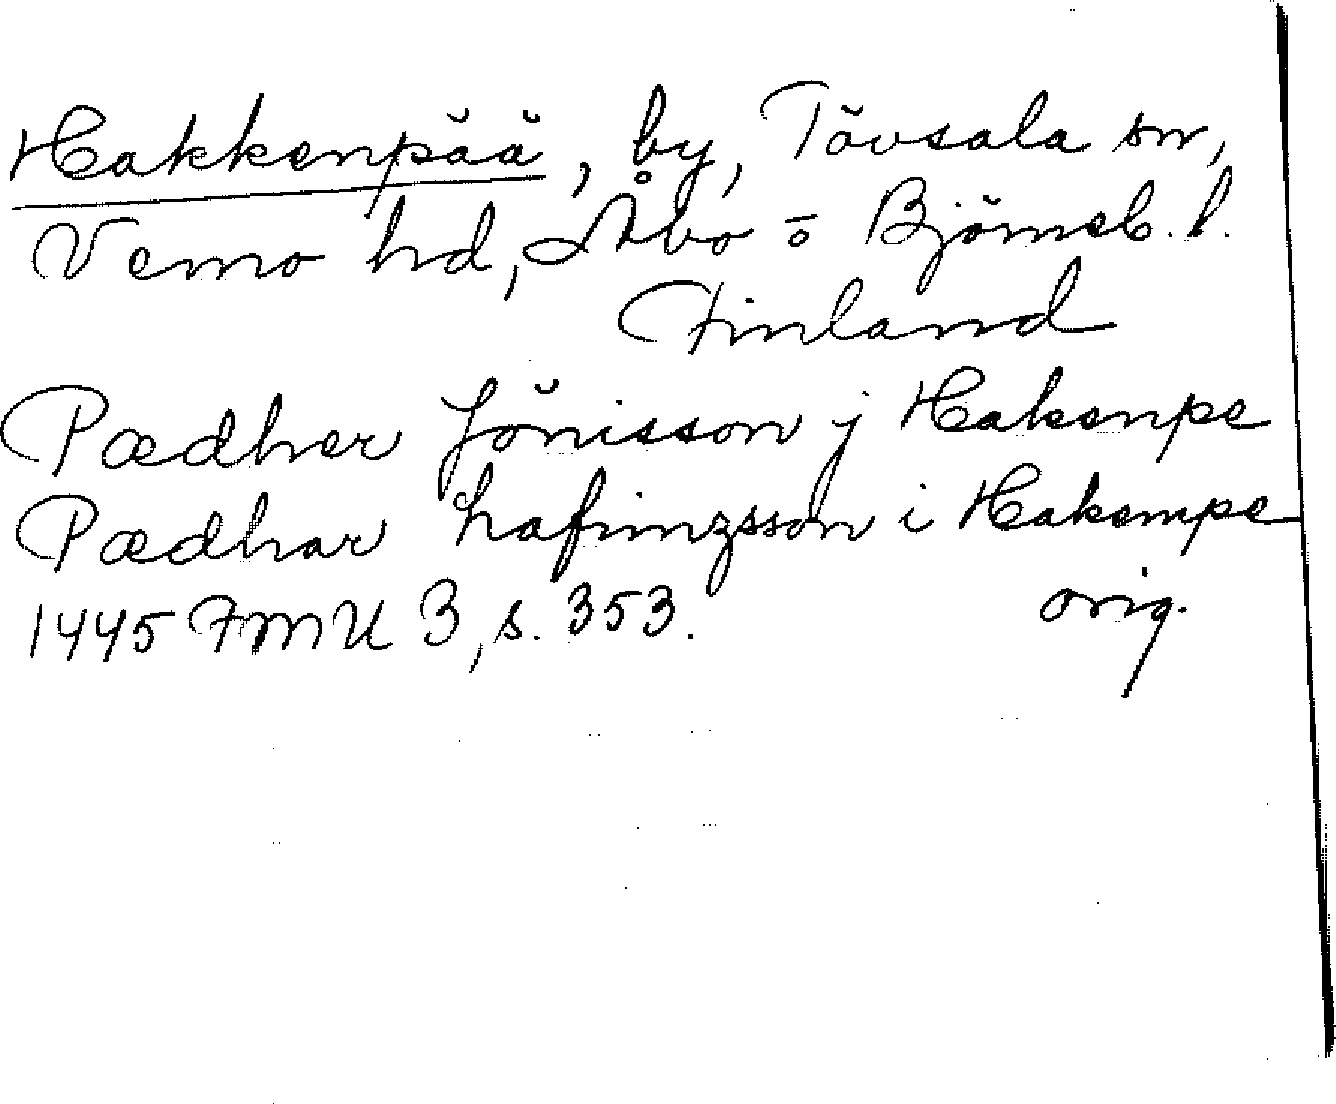 Hakkenpää, by, Tövsala sn,
Vemo hd, Åbo o Björneb. l.
Finland
Pædher Jönisson j Hakenpe
Pædhar Lafrinzsson i Hakempe
1445 FMU 3, s. 353. orig.